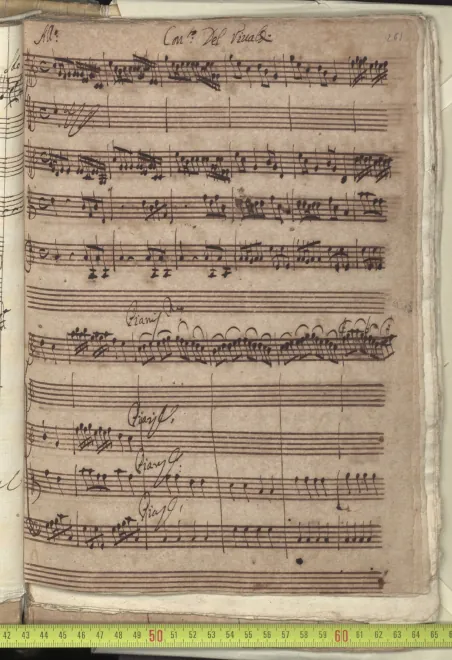 All.º Con.to Del Viualdi
Pianiss.º
Pianiss.
Pianiss.
Pianiss.
42 43 44 45 46 47 48 49 50 51 52 53 54 55 56 57 58 59 60 61 62 63 64 65